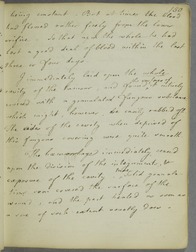 being constant. But at times the blood
had flowed rather freely from the
. So that upon the whole, he had
lost a good deal of blood within the last
three or four days.
I immediately laid open the whole
cavity of the tumour, and found it entirely
covered with a granulated fungous substance
which might however be easily rubbed off
The sides of the cavity when deprived of
this fungous covering were quite smooth
The haemorrhage immediately ceased
upon the division of the integuments &
exposure of the cavity. Mild
were round the surface of the
wound, and the part healed as soon as
a sore of such extent usually does.